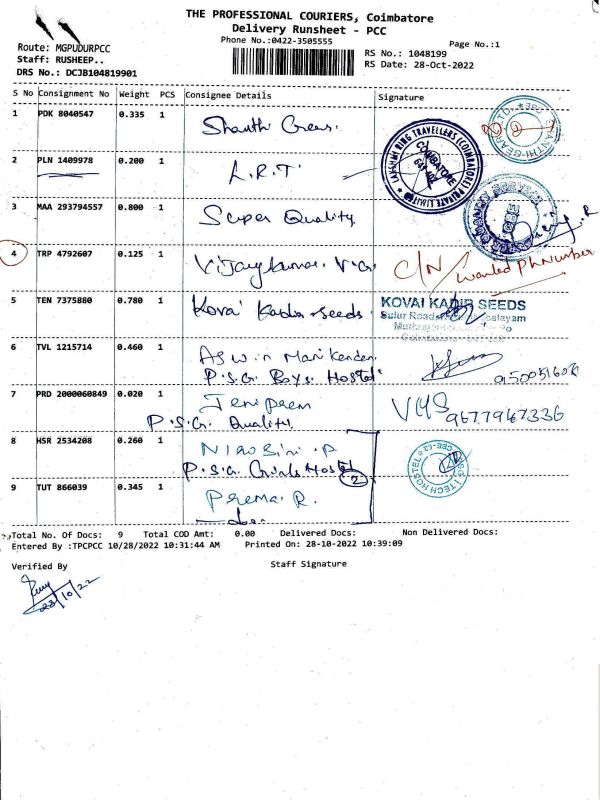 THE PROFESSIONAL COURIERS, Coimbatore
Delivery Runsheet - PCC
Phone No.:0422-3505555
Page No.:1
Route: MGPUDURPCC
Staff: RUSHEEP..
DRS No.: DCJB104819901
RS No.: 1048199
RS Date: 28-Oct-2022
S No Consignment No Weight PCS Consignee Details Signature
1 PDK 8040547 0.335 1 Shanthi Gears.
2 PLN 1409978 0.200 1 L.R.T.
LAKSHMI RING TRAVELLERS (COIMBATORE) PRIVATE LIMITED
COIMBATORE
3 MAA 293794557 0.800 1 Super Quality
4 TRP 4792607 0.125 1 Vijaykumar. V.G. C/N / wanted Ph Number
5 TEN 7375880 0.780 1 Kovai Kadir seeds.
KOVAI KADIR SEEDS
Sulur Road
6 TVL 1215714 0.460 1 Aswin Manikandan
P.S.G. Boys. Hostel
7 PRD 2000060849 0.020 1 9677947336
P.S.G. Quality.
8 HSR 2534208 0.260 1 P
P.S.G. Girls Hostel
2
TECH HOSTEL
9 TUT 866039 0.345 1 Prema. R.
Total No. Of Docs: 9 Total COD Amt: 0.00 Delivered Docs: Non Delivered Docs:
Entered By :TPCPCC 10/28/2022 10:31:44 AM Printed On: 28-10-2022 10:39:09
Verified By Staff Signature